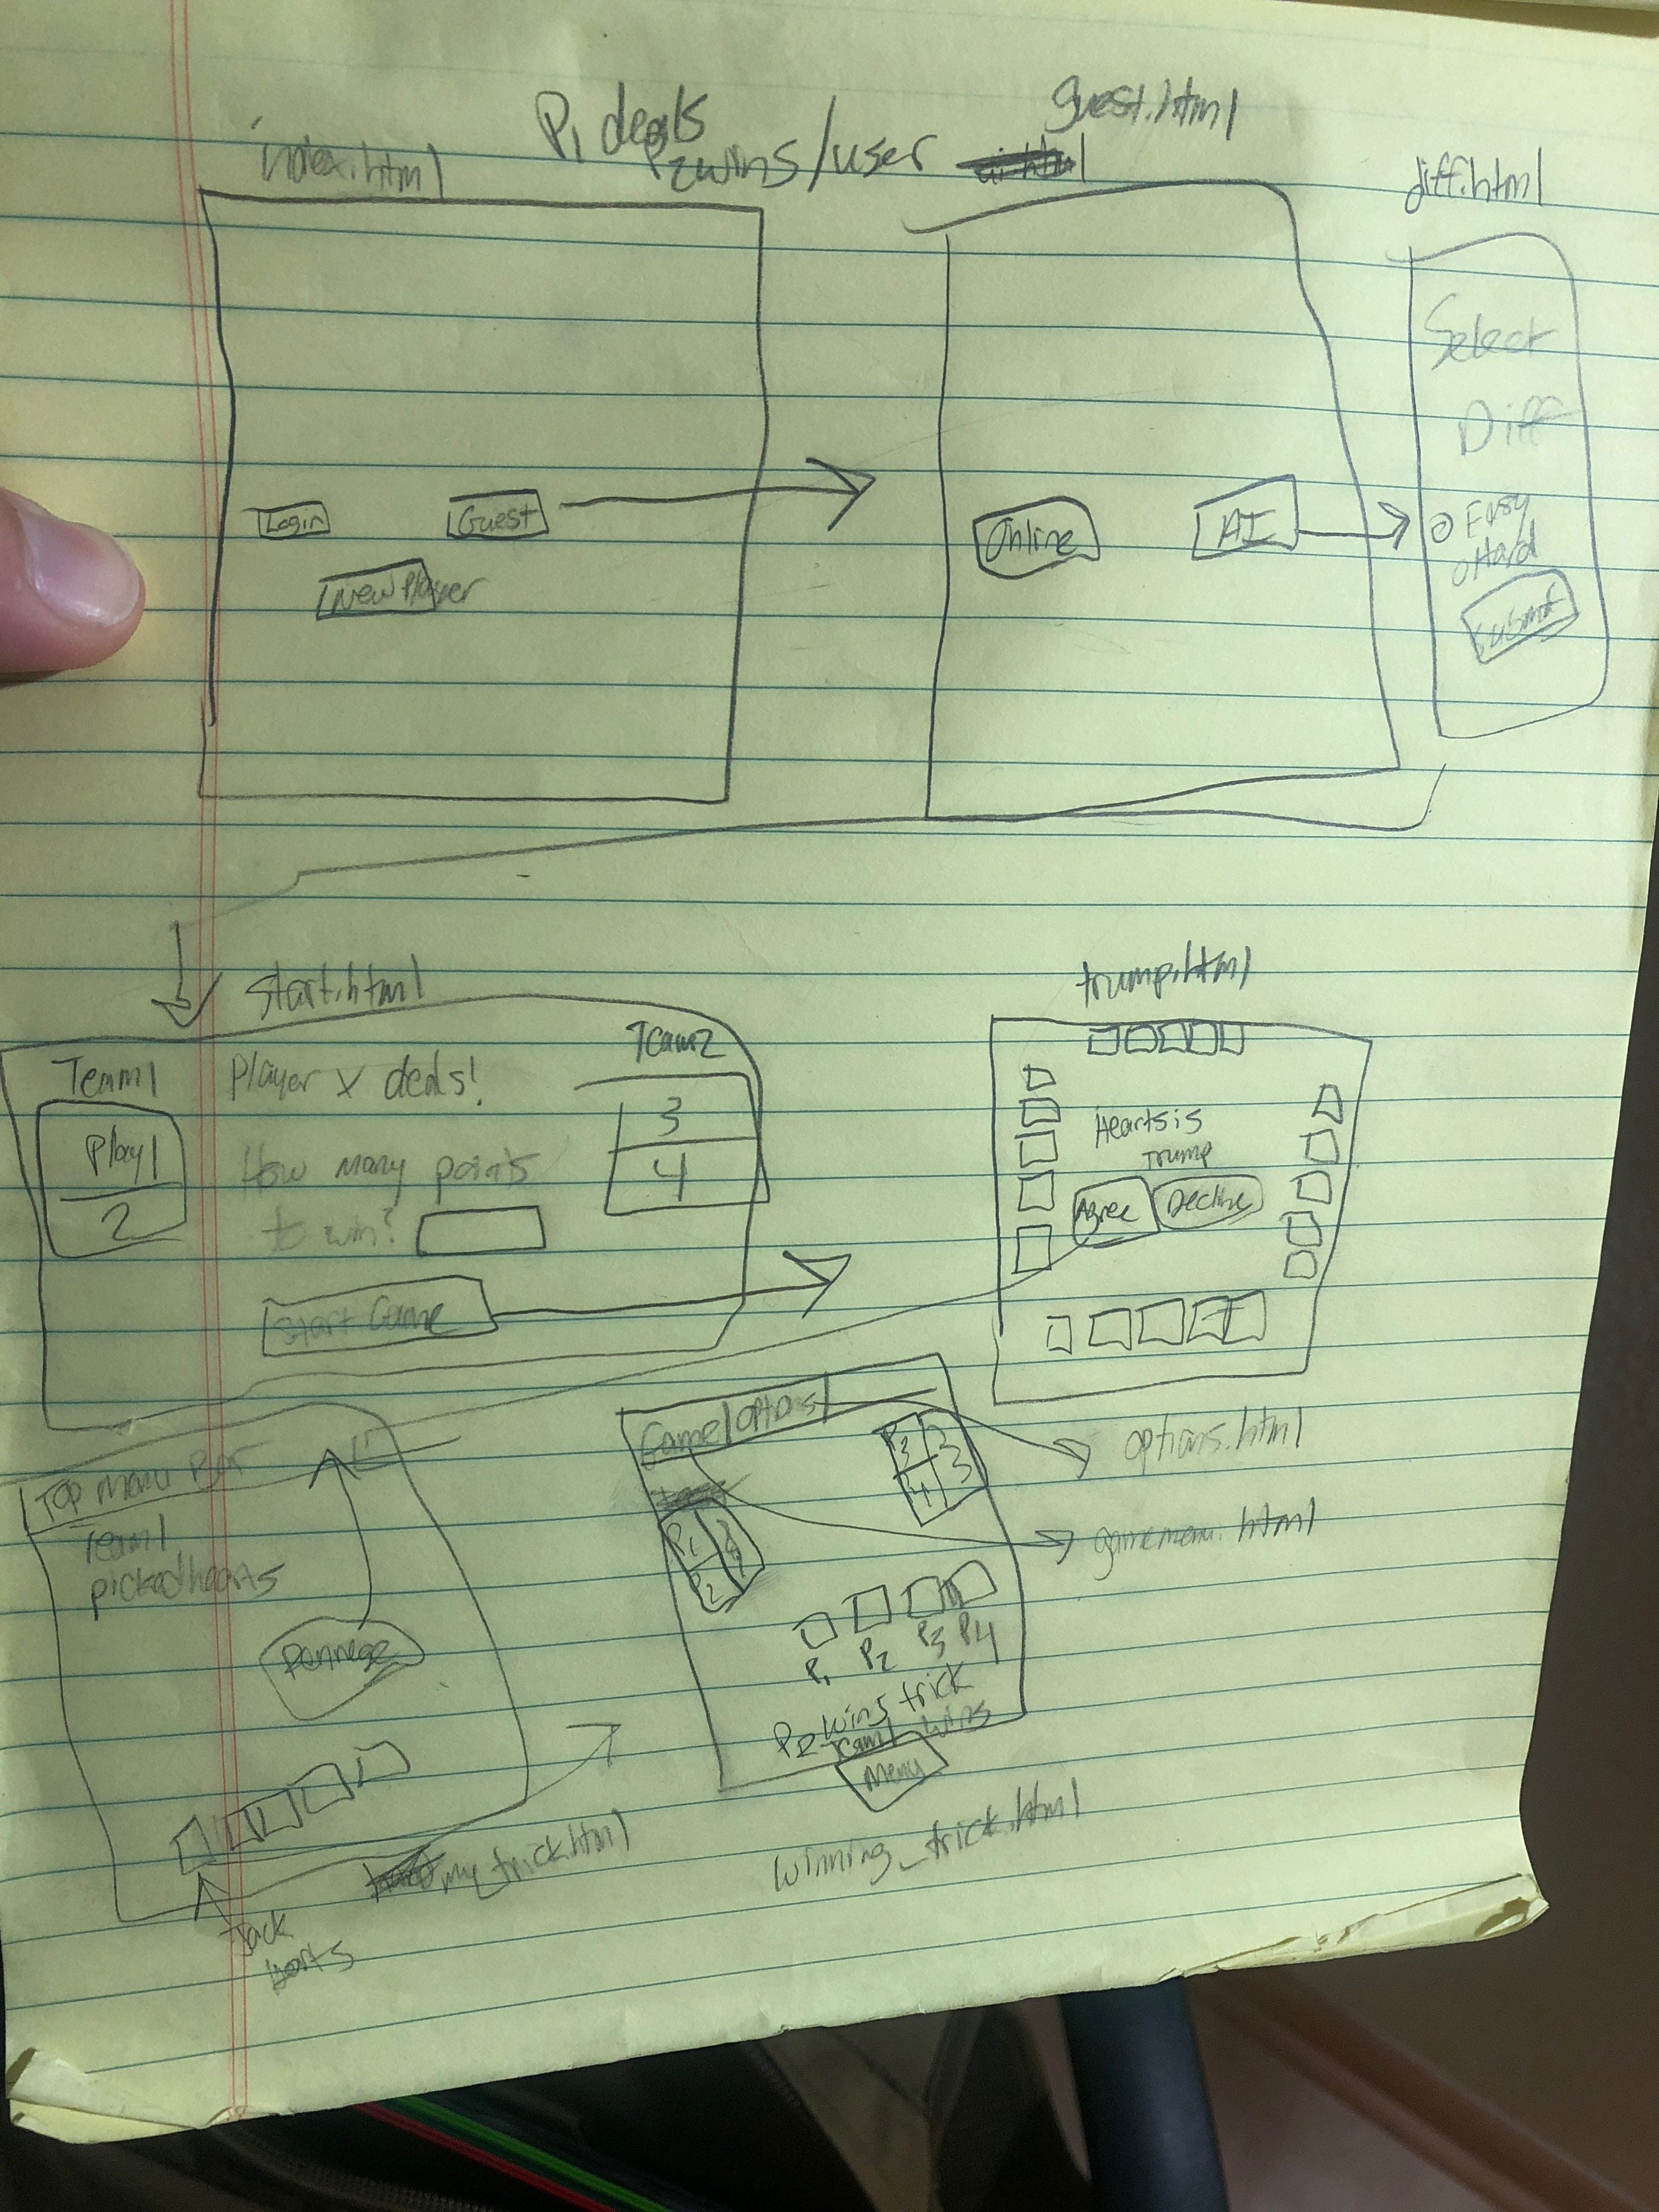 P1 deals
P2 wins/user
guest.html
index.html
diff.html
Select
Diff
Login
Guest
New Player
Online
AI
Easy
Hard
Submit
start.html
trump.html
Team 1
Player x deals!
Team 2
Play 1
2
3
4
How many points
to win?
Start Game
Hearts is
Trump
Agree
Decline
Top Menu Bar
Team 1
picked hearts
Game
Options
options.html
gamemenu.html
P3
3
P4
3
P1
P2
P1
P2
P3
P4
P2 wins trick
Team 1 wins
Menu
my_trick.html
winning_trick.html
Jack